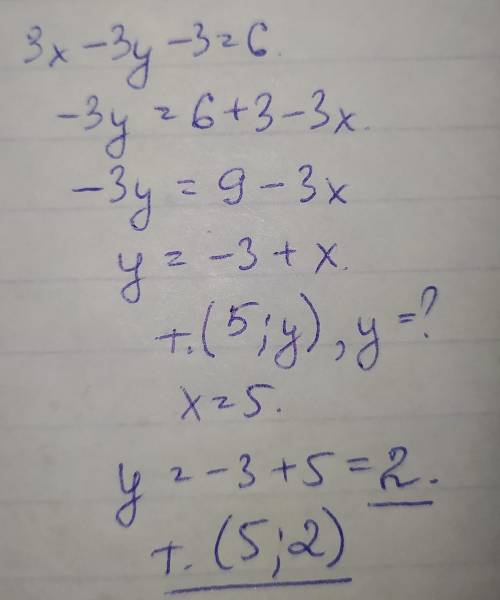 3x - 3y - 3 = 6.
-3y = 6 + 3 - 3x.
-3y = 9 - 3x
y = -3 + x.
т. (5; y), y = ?
x = 5.
y = -3 + 5 = 2.
т. (5; 2)